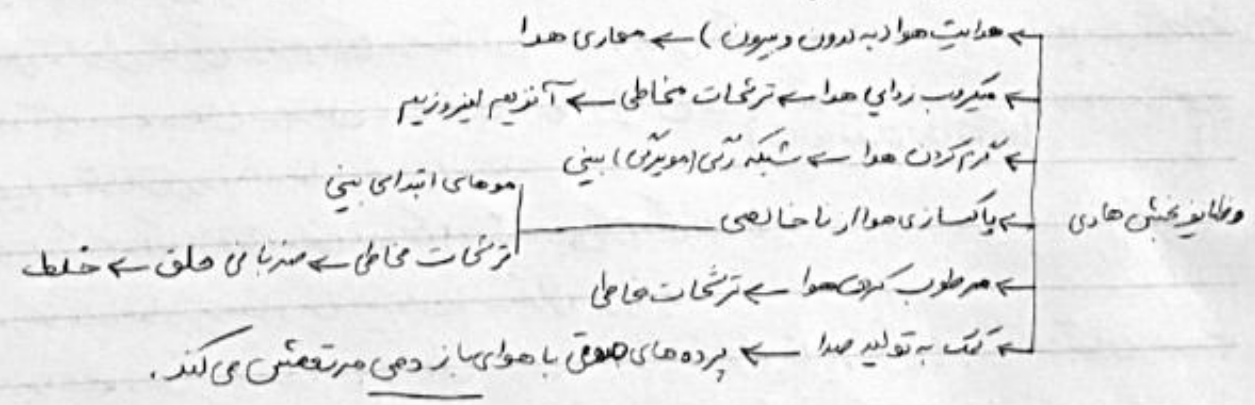 وظایف بخش هادی
← هدایت هوا (به درون و بیرون) ← مجاری هوا
← میکروب زدایی هوا ← ترشحات مخاطی ← آنزیم لیزوزیم
← گرم کردن هوا ← شبکه رگی (مویرگی) بینی
← پاکسازی هوا از ناخالصی
موهای ابتدای بینی
ترشحات مخاطی ← ضربانی حلق ← خلط
← مرطوب کردن هوا ← ترشحات مخاطی
← کمک به تولید صدا ← پرده های صوتی با هوای بازدمی مرتعش می کند.